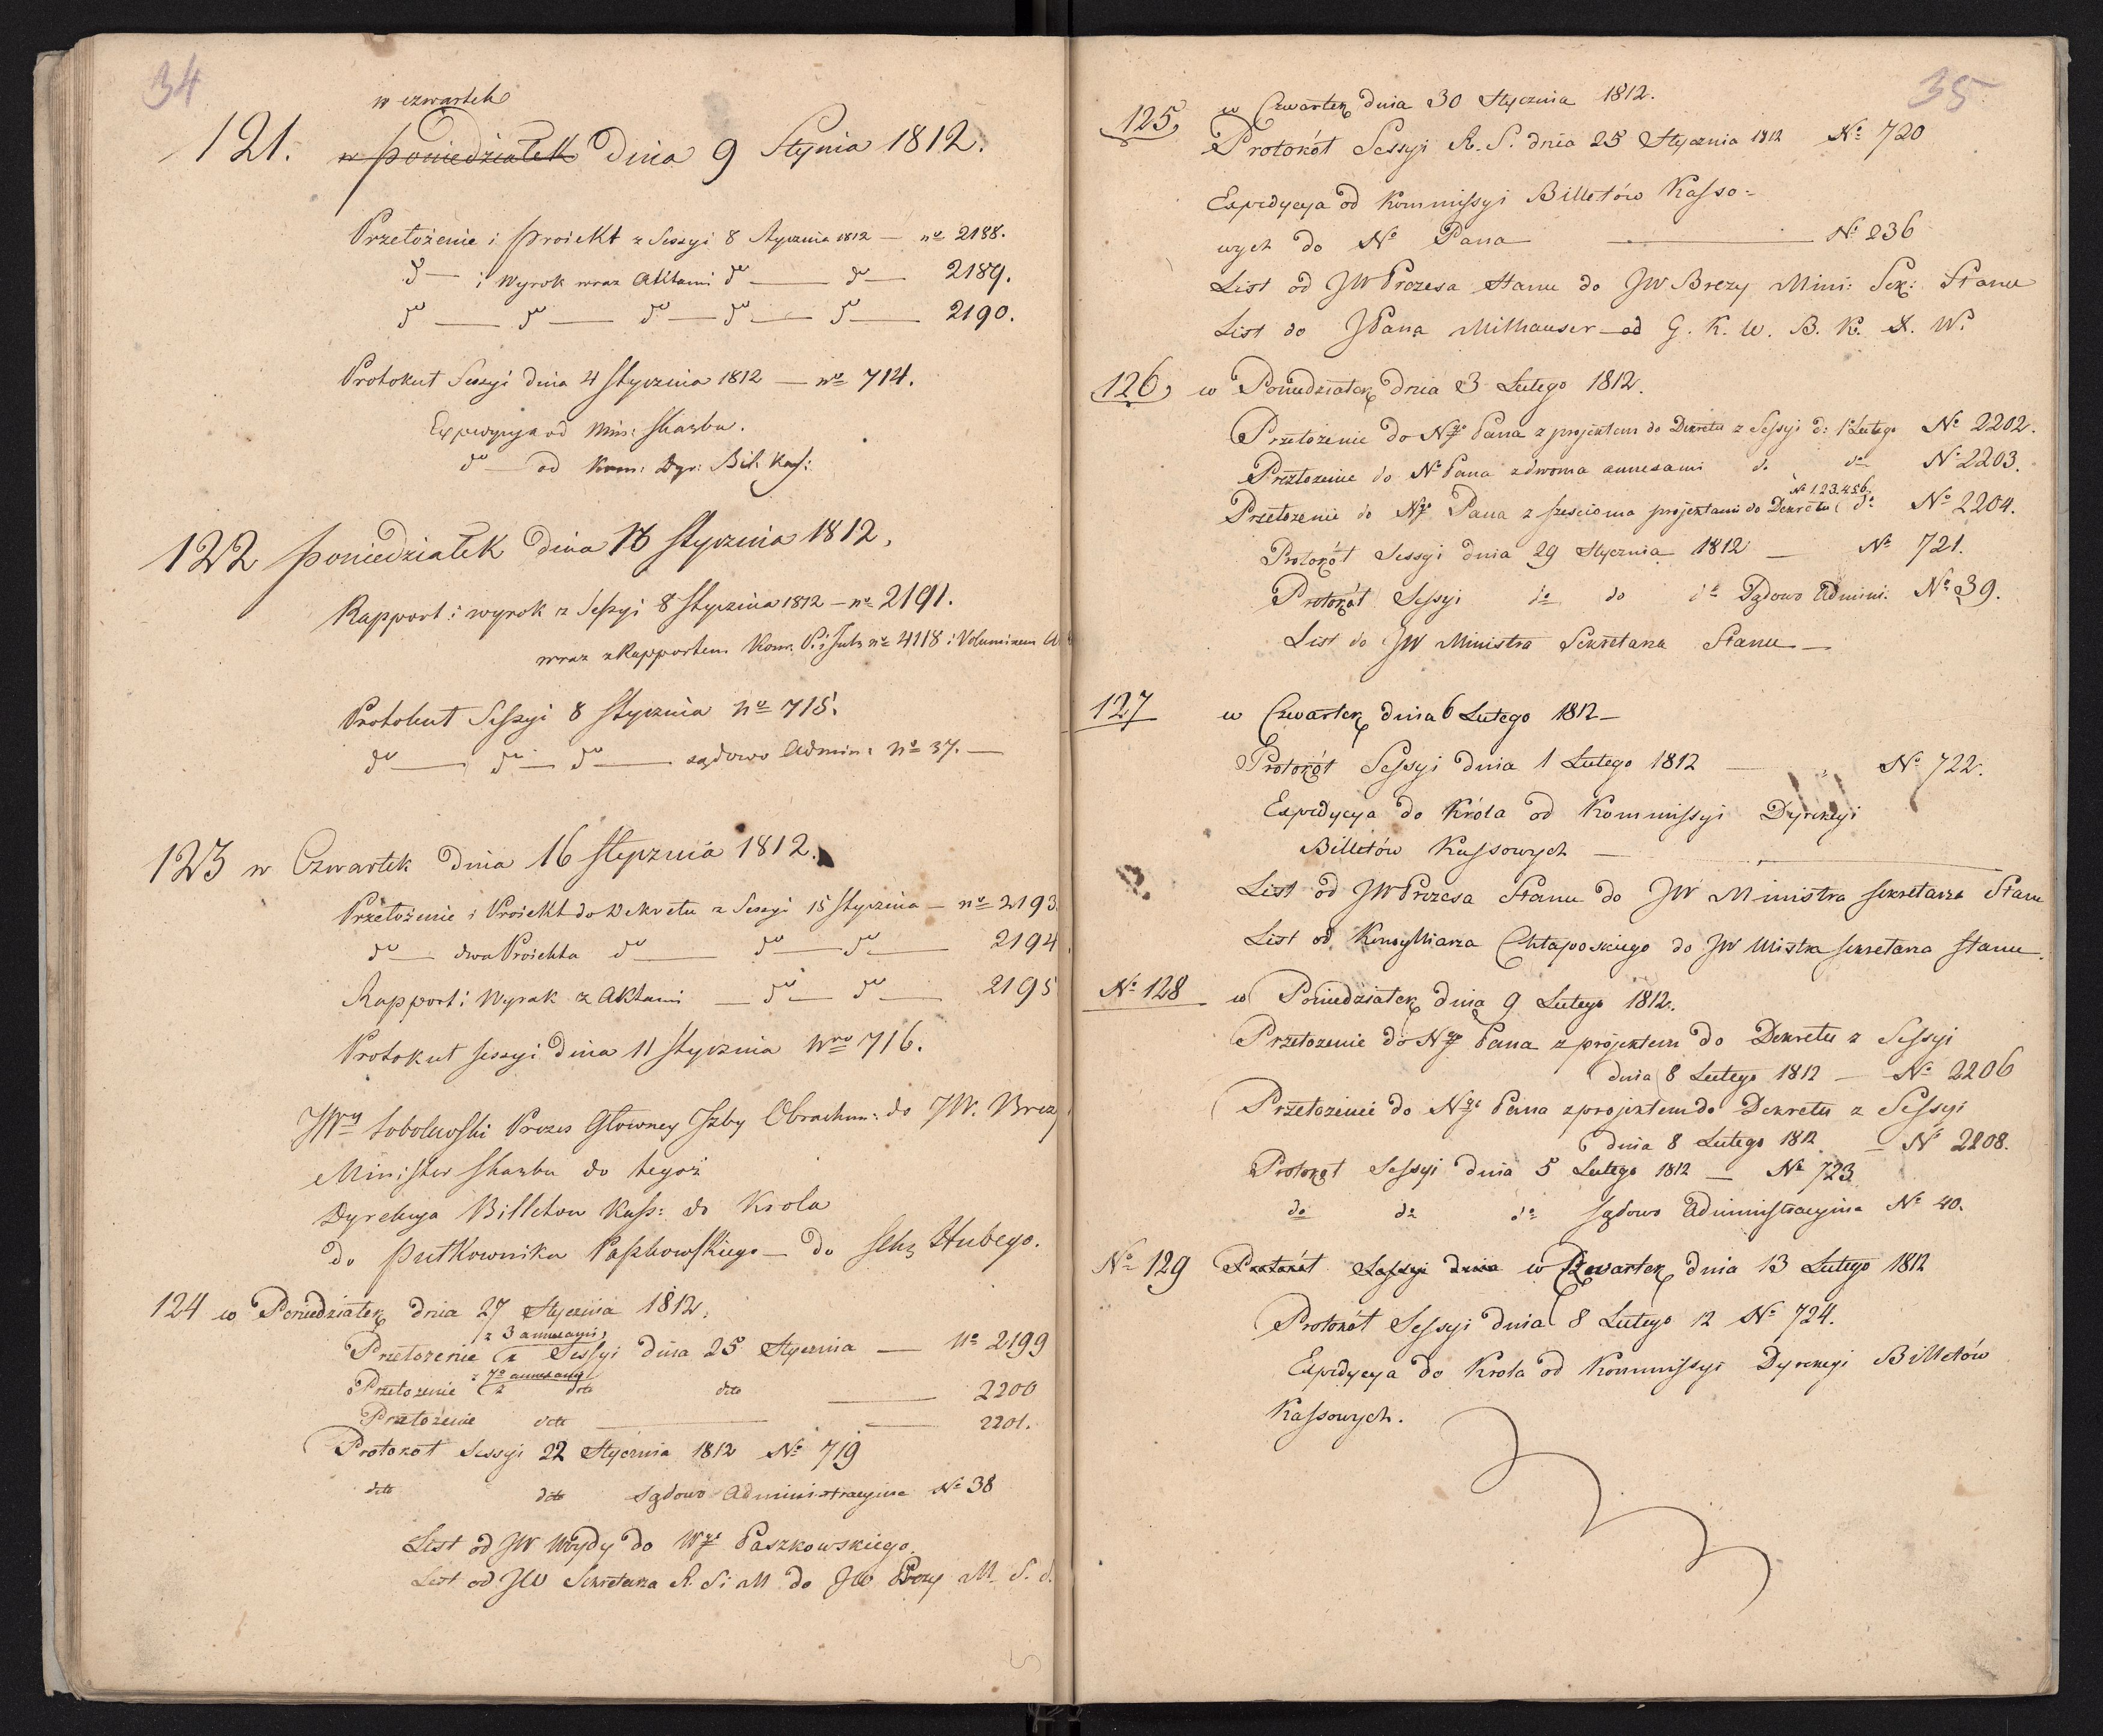 34
w czwartek
121. w poniedziałek Dnia 9 Stynia 1812.
Przełożenie i proiekt z Sessyi 8 Stycznia 1812 — no 2188.
do — i Wyrok wraz Aktami do — do — 2189.
do — do — do — do — do — 2190.
Protokuł Sessyi dnia 4 Stycznia 1812 — no 714.
Expedycya od Min: Skarbu.
do — od Kom: Dyr: Bil: Kass:
122 poniedziałek dnia 13 Stycznia 1812.
Rapport i wyrok z Sessyi 8 Stycznia 1812 — no 2191.
wraz z Rapportem Kom. no 4118 i Voluminem
Protokuł Sessyi 8 Stycznia No 715.
do — do — do — sądowo Admin: No 37. —
123 w Czwartek dnia 16 Stycznia 1812.
Przełożenie i Proiekt do Dekretu z Sessyi 15 Stycznia — no 2193
do — dwa Proiekta do — do — do — 2194
Rapport i Wyrok z Aktami — do — do — 2195
Protokuł sessyi dnia 11 Stycznia Nro 716.
JWny Sobolewski Prezes Głowney Izby Obrachun: do JW. Brezy
Minister Skarbu do tegoż
Dyrekcya Billetow Kass: do Krola
do pułkownika Paszkowskiego — do Sekr Hubego.
124 w Poniedziałek dnia 27 Stycznia 1812.
z 3 annexami
Przełożenie z Sessyi dnia 25 Stycznia — No 2199
z 7 annexami
Przełożenie z dto dto — 2200
Przełożenie dto — 2201.
Protokół Sessyi 22 Stycznia 1812 No 719
dto dto Sądowo Administracyjna No 38
List od JW Wojdy do Wgo Paszkowskiego.
List od JW Sekretarza R. S. i M. do JW Brezy M. S. S.
35
125 w Czwartek dnia 30 Stycznia 1812.
Protokół Sessyi R. S. dnia 25 Stycznia 1812 No 720
Expedycya od Kommissyi Billetów Kasso-
wych do No Pana — No 236
List od JW Prezesa Stanu do JW Brezy Mini: Sek: Stanu
List do JPana Milhauser od G. K. W. B. K. X. W.
126 w Poniedziałek dnia 3 Lutego 1812.
Przełożenie do Ngo Pana z projektem do Dekretu z Sessyi d: 1 Lutego No 2202.
Przełożenie do No Pana z dwoma annexami do do No 2203.
No 1.2.3.4.5.6.
Przełożenie do Ngo Pana z sześcioma projektami do Dekretu do No 2204.
Protokół Sessyi dnia 29 Stycznia 1812 — No 721.
Protokół Sessyi do do do Sądowo Admini: No 39.
List do JW Ministra Sekretarza Stanu —
127 w Czwartek dnia 6 Lutego 1812 —
Protokół Sessyi dnia 1 Lutego 1812 — No 722.
Expedycya do Króla od Kommissyi Dyrekcyi
Billetów Kassowych —
List od JW Prezesa Stanu do JW Ministra sekretarza Stanu
List od Konsylliarza Chłaposkiego do JW Mistra sekretarza stanu.
No 128 w Poniedziałek dnia 9 Lutego 1812.
Przełożenie do Ngo Pana z projektem do Dekretu z Sessyi
dnia 8 Lutego 1812 — No 2206
Przełożenie do Ngo Pana z projektem do Dekretu z Sessyi
dnia 8 Lutego 1812 — No 2208.
Protokół Sessyi dnia 5 Lutego 1812 — No 723
do do do sądowo Administracyjna No 40.
No 129 Protokół Sessyi dnia w Czwartek dnia 13 Lutego 1812
Protokół Sessyi dnia 8 Lutego 12 No 724.
Expedycya do Krola od Kommissyi Dyrekcyi Billetów
Kassowych.